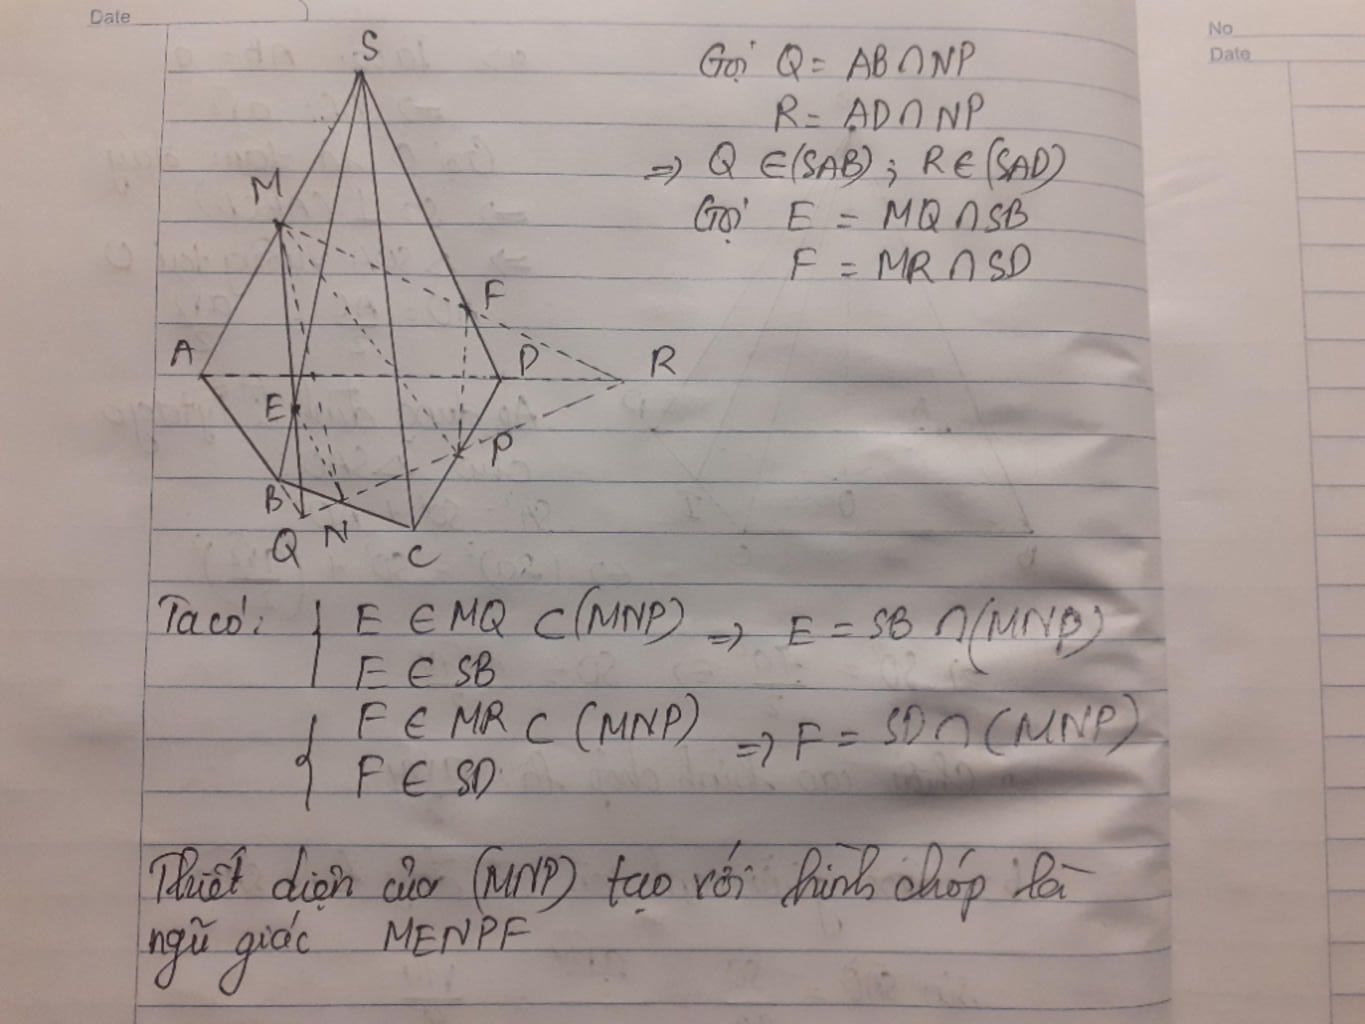 Date
No
Date
S
M
F
A
D
R
E
P
B
Q
N
C
Gọi Q = AB ∩ NP
R = AD ∩ NP
=> Q ∈ (SAB) ; R ∈ (SAD)
Gọi E = MQ ∩ SB
F = MR ∩ SD
Ta có: { E ∈ MQ ⊂ (MNP) => E = SB ∩ (MNP)
E ∈ SB
{ F ∈ MR ⊂ (MNP) => F = SD ∩ (MNP)
F ∈ SD
Thiết diện của (MNP) tạo với hình chóp là
ngũ giác MENPF